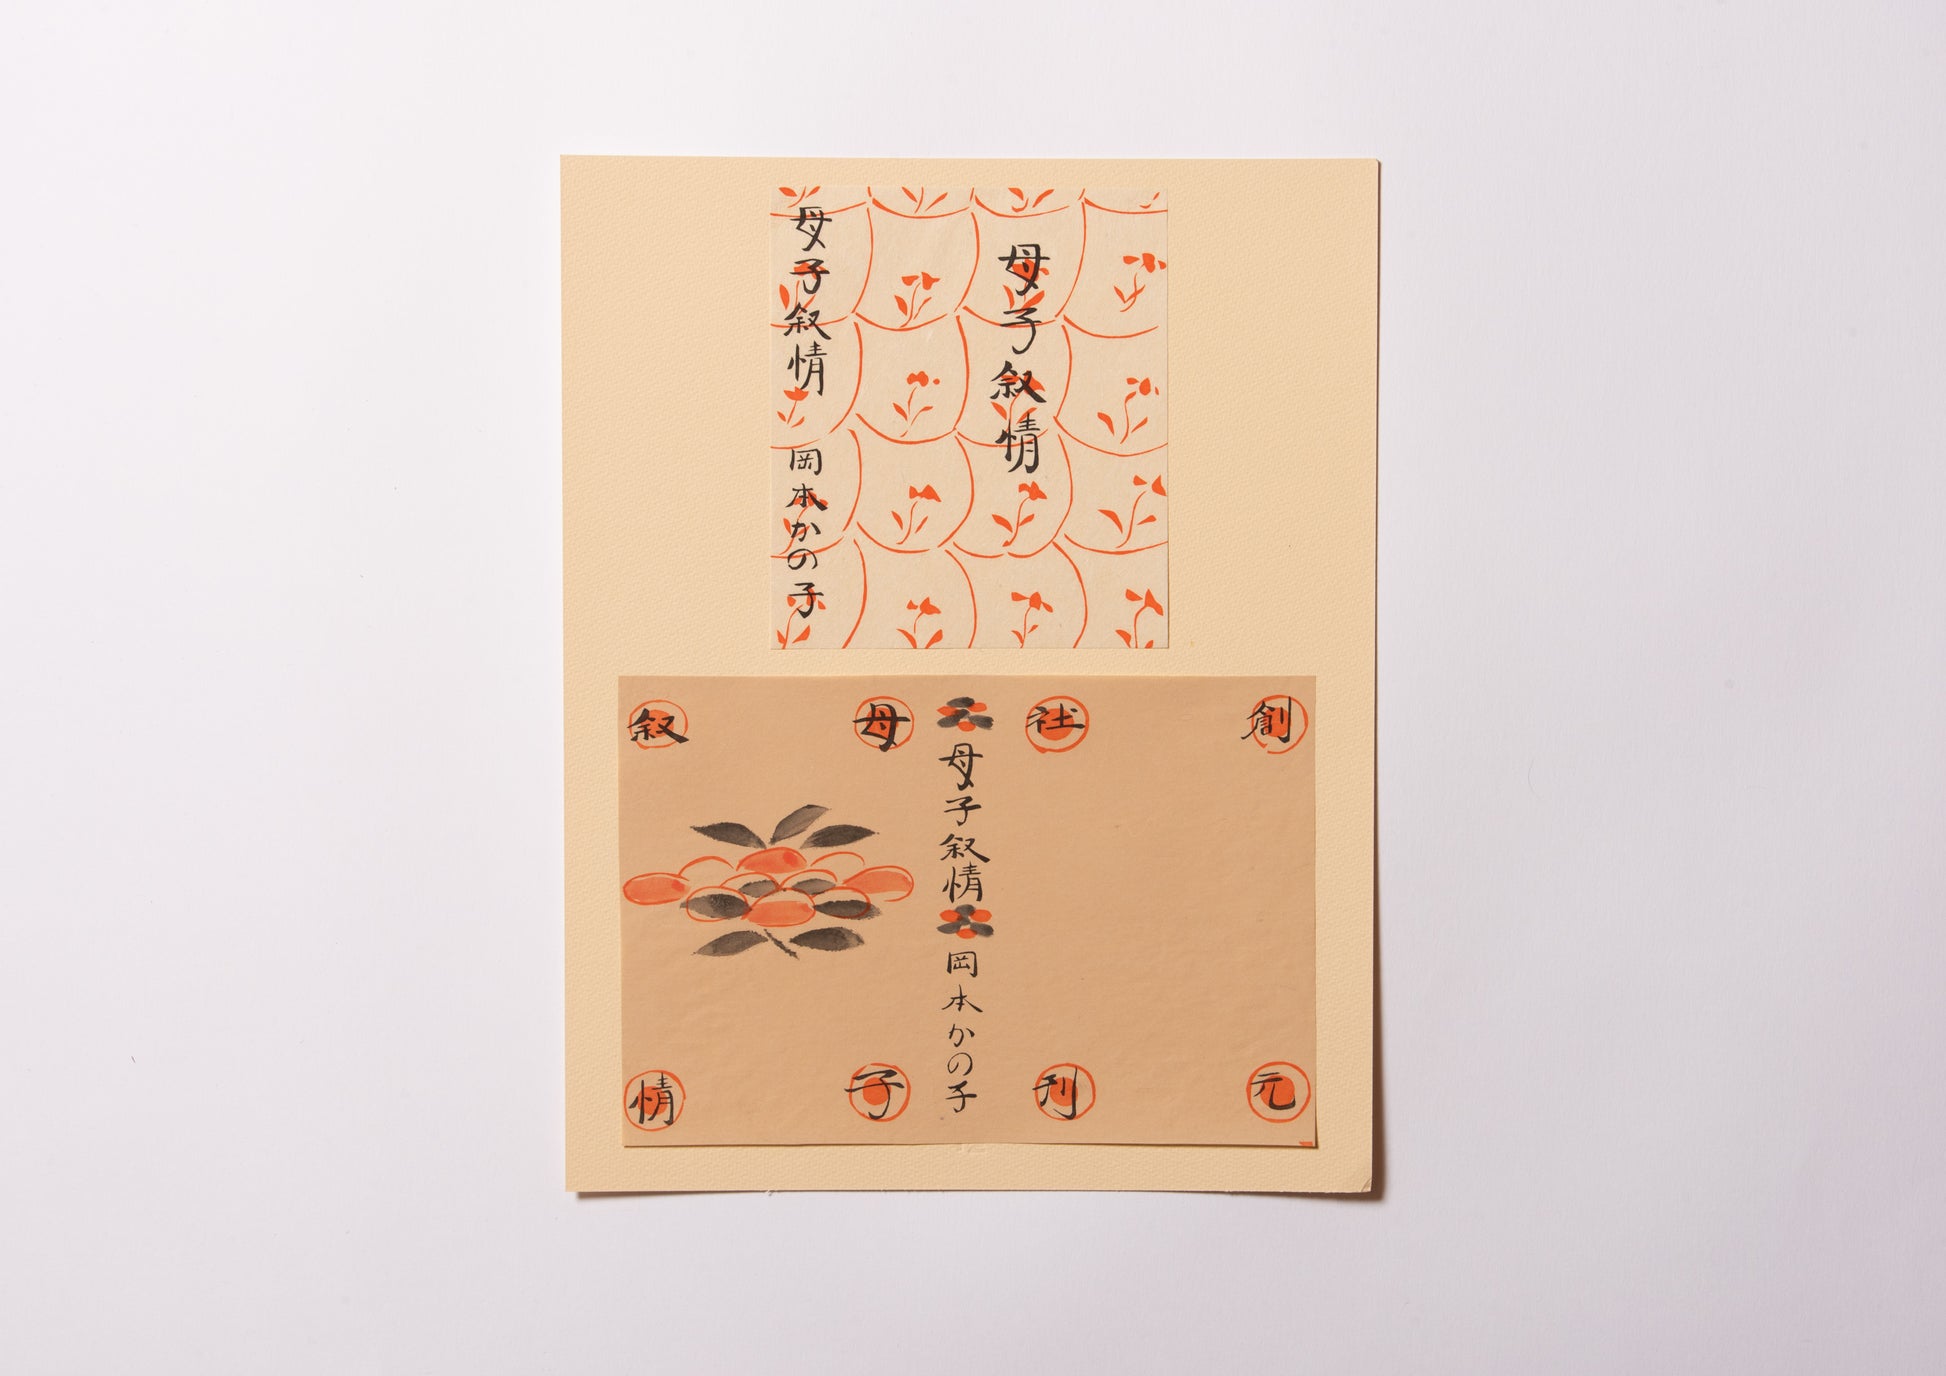 母子叙情
母子叙情 岡本かの子
創元
社刊
母子叙情 岡本かの子
母子
叙情